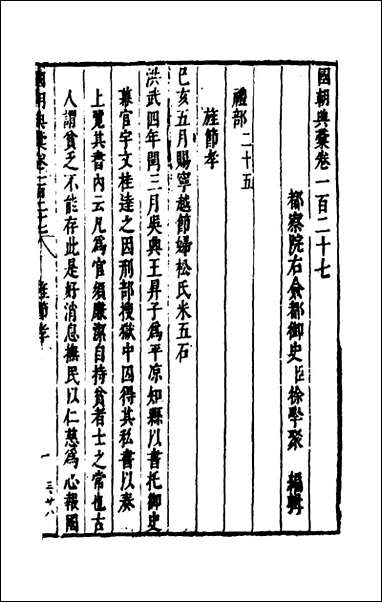 國朝典彙卷一百二十七
都察院右僉都御史臣徐學聚 編輯
禮部二十五
旌節孝
己亥五月賜寧越節婦松氏米五石
洪武四年閏三月吳興王昇子為平凉知縣以書托御史
幕官宇文桂逹之因刑部搜獄中囚得其私書以奏
上覽其書內云凡為官須廉潔自持貧者士之常也古
人謂貧乏不能存此是好消息撫民以仁慈為心報國
國朝典彙卷一百二十七 旌節孝 一